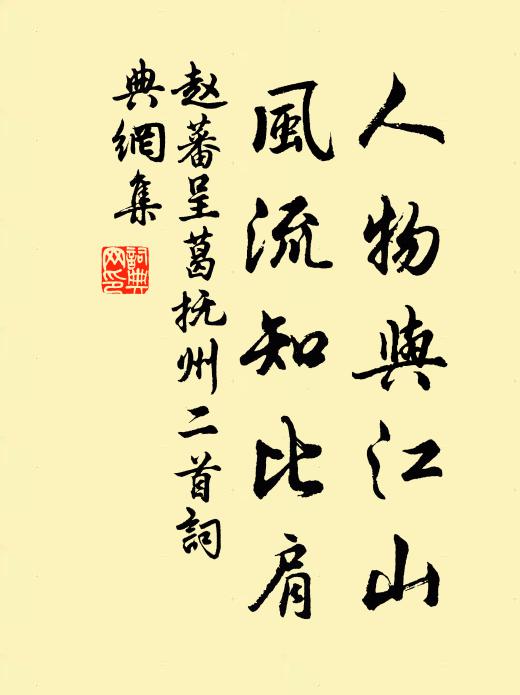 人物與江山
風流知比肩
赵蕃呈葛抚州二首詞
典網集
詞典
网印